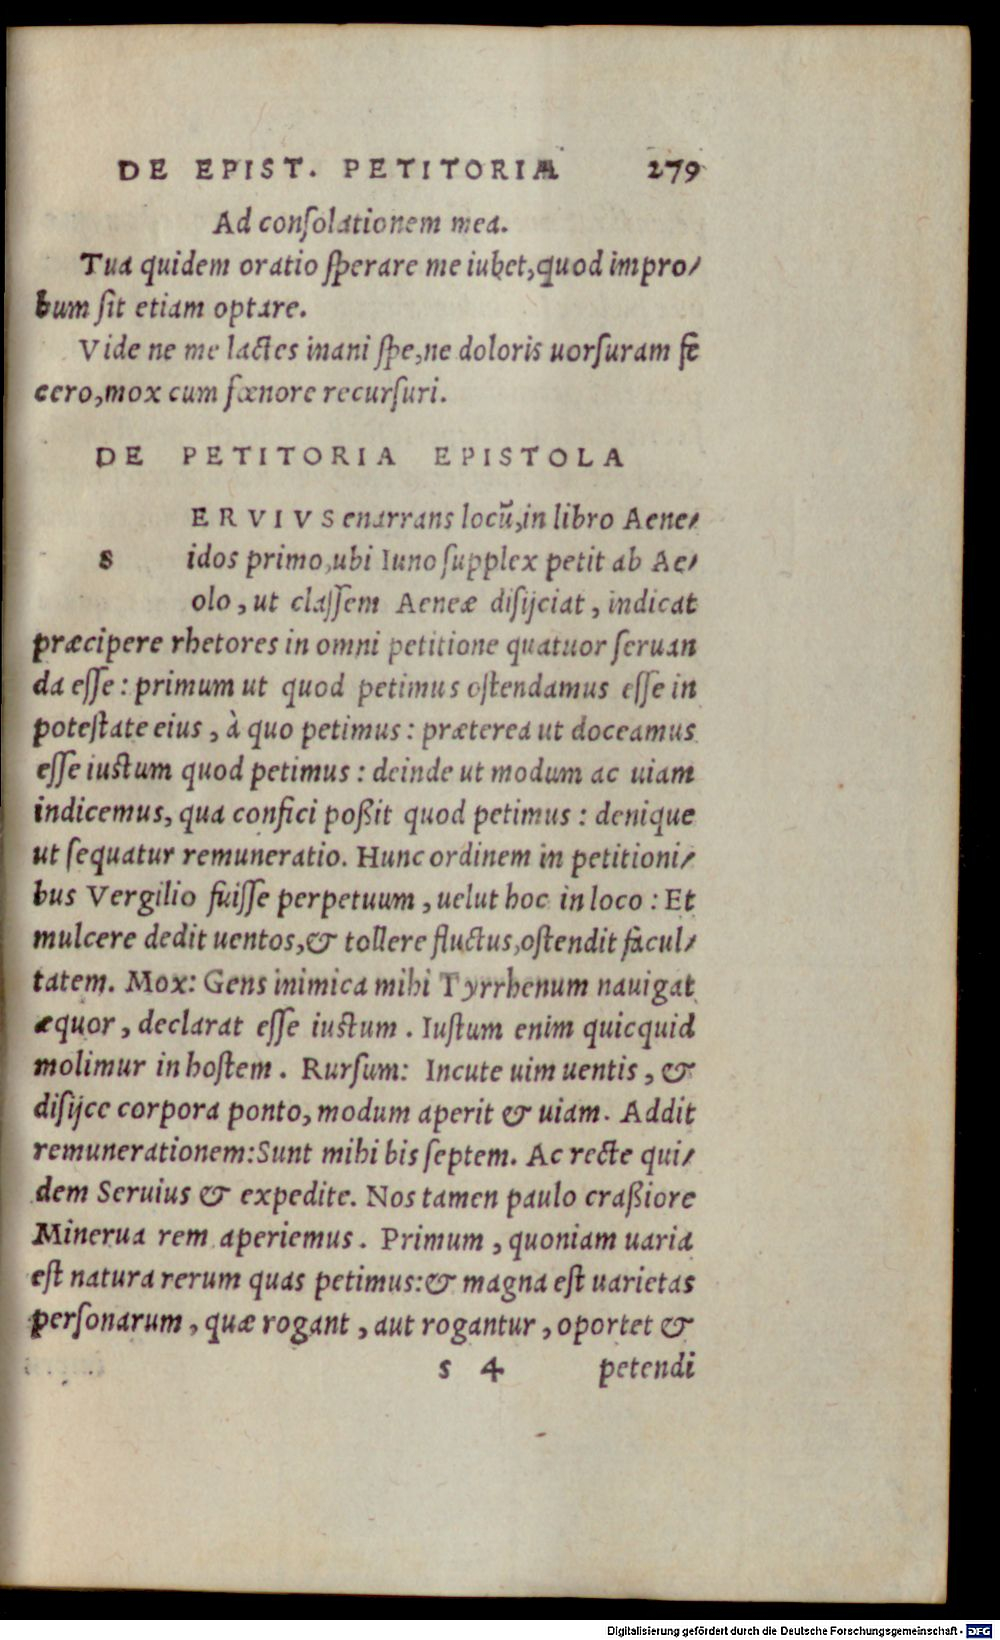 DE EPIST. PETITORIA 279
Ad conſolationem mea.
Tua quidem oratio ſperare me iubet, quod impro/
bum ſit etiam optare.
Vide ne me lactes inani ſpe, ne doloris uorſuram fe
cero, mox cum fœnore recurſuri.
DE PETITORIA EPISTOLA
ERVIVS enarrans locũ, in libro Aene/
s idos primo, ubi Iuno ſupplex petit ab Ae/
olo, ut claſſem Aeneæ diſijciat, indicat
præcipere rhetores in omni petitione quatuor ſeruan
da eſſe: primum ut quod petimus oſtendamus eſſe in
poteſtate eius, à quo petimus: præterea ut doceamus
eſſe iustum quod petimus: deinde ut modum ac uiam
indicemus, qua confici poßit quod petimus: denique
ut ſequatur remuneratio. Hunc ordinem in petitioni/
bus Vergilio fuiſſe perpetuum, uelut hoc in loco: Et
mulcere dedit uentos, & tollere fluctus, oſtendit facul/
tatem. Mox: Gens inimica mihi Tyrrhenum nauigat
æquor, declarat eſſe iustum. Iuſtum enim quicquid
molimur in hoſtem. Rurſum: Incute uim uentis, &
diſijce corpora ponto, modum aperit & uiam. Addit
remunerationem: Sunt mihi bis ſeptem. Ac recte qui/
dem Seruius & expedite. Nos tamen paulo craßiore
Minerua rem aperiemus. Primum, quoniam uaria
eſt natura rerum quas petimus: & magna eſt uarietas
perſonarum, quæ rogant, aut rogantur, oportet &
s 4 petendi
Digitalisierung gefördert durch die Deutsche Forschungsgemeinschaft - DFG